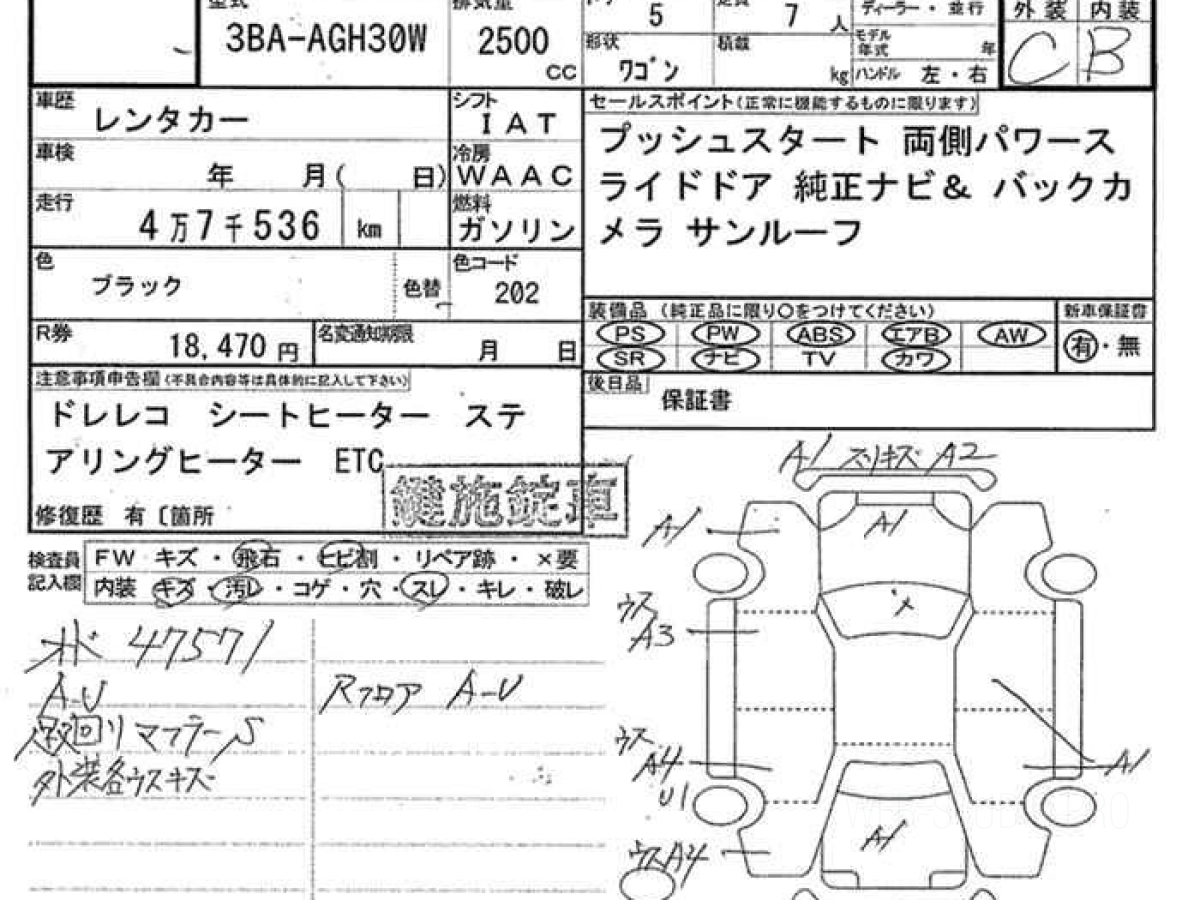 型式
3BA-AGH30W
排気量
2500
CC
5
7
人
ディーラー・並行
外装 内装
C B
形状
ワゴン
積載
kg
モデル
年式
年
ハンドル 左・右
車歴
レンタカー
シフト
IAT
セールスポイント(正常に機能するものに限ります)
プッシュスタート 両側パワース
ライドドア 純正ナビ& バックカ
メラ サンルーフ
車検
年 月( 日)
冷房
WAAC
走行
4万7千536 km
燃料
ガソリン
色
ブラック
色替
色コード
202
装備品 (純正品に限り○をつけてください)
PS PW ABS エアB AW
SR ナビ TV カワ
新車保証書
有・無
R券
18,470 円
名変通知期限
月 日
後日品
保証書
注意事項申告欄(不具合内容等は具体的に記入して下さい)
ドレレコ シートヒーター ステ
アリングヒーター ETC
鍵施錠車
修復歴 有〔箇所
検査員
記入欄
FW キズ・飛石・ヒビ割・リペア跡・×要
内装 キズ・汚レ・コゲ・穴・スレ・キレ・破レ
47571
A-U
Rフロア A-U
足回リ マフラー S
外装各ウスキズ
A1 スリキズ A2
A1
A1
ウス
A3
ウス
A4
U1
A1
A1
ウスA4